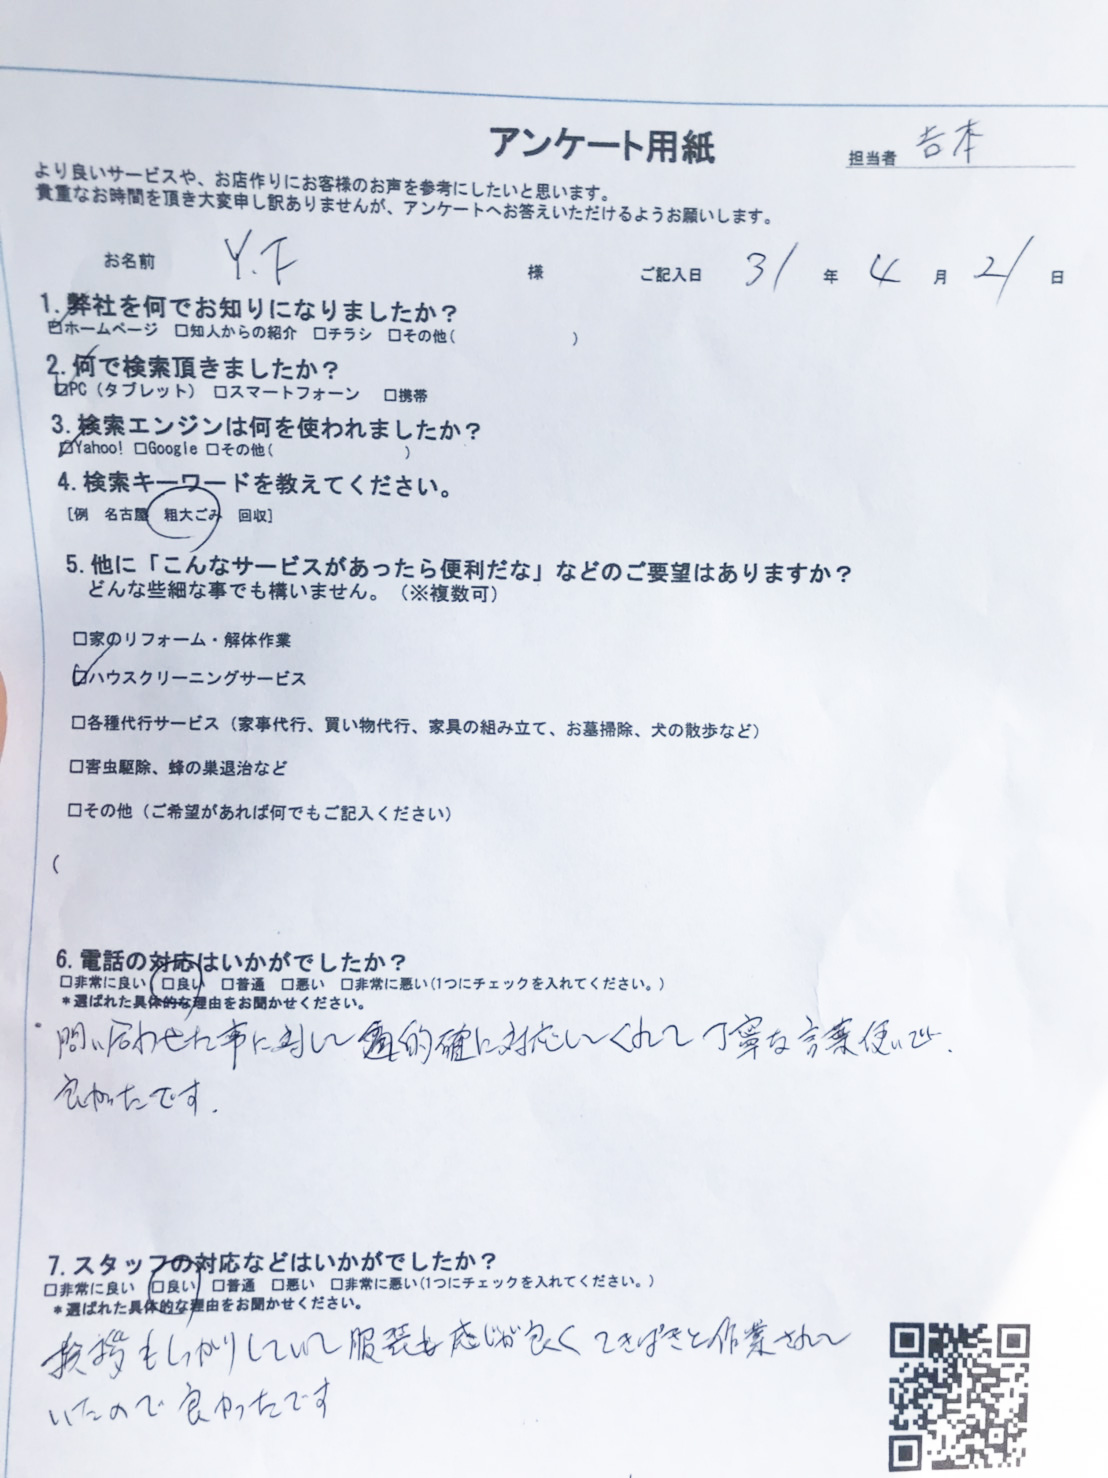 アンケート用紙
担当者 吉本
より良いサービスや、お店作りにお客様のお声を参考にしたいと思います。
貴重なお時間を頂き大変申し訳ありませんが、アンケートへお答えいただけるようお願いします。
お名前 Y.F 様 ご記入日 31年 4月 21日
1.弊社を何でお知りになりましたか？
☑ホームページ □知人からの紹介 □チラシ □その他( )
2.何で検索頂きましたか？
☑PC（タブレット） □スマートフォーン □携帯
3.検索エンジンは何を使われましたか？
☑Yahoo! □Google □その他( )
4.検索キーワードを教えてください。
[例 名古屋 粗大ごみ 回収]
5.他に「こんなサービスがあったら便利だな」などのご要望はありますか？
どんな些細な事でも構いません。（※複数可）
□家のリフォーム・解体作業
☑ハウスクリーニングサービス
□各種代行サービス（家事代行、買い物代行、家具の組み立て、お墓掃除、犬の散歩など）
□害虫駆除、蜂の巣退治など
□その他（ご希望があれば何でもご記入ください）
(
6.電話の対応はいかがでしたか？
□非常に良い □良い □普通 □悪い □非常に悪い(1つにチェックを入れてください。)
*選ばれた具体的な理由をお聞かせください。
問い合わせた事に対して 的確に対応してくれて 丁寧な言葉使いで、
良かったです.
7.スタッフの対応などはいかがでしたか？
□非常に良い □良い □普通 □悪い □非常に悪い(1つにチェックを入れてください。)
*選ばれた具体的な理由をお聞かせください。
挨拶もしっかりしていて 服装も感じが良く てきぱきと作業されて
いたので 良かったです